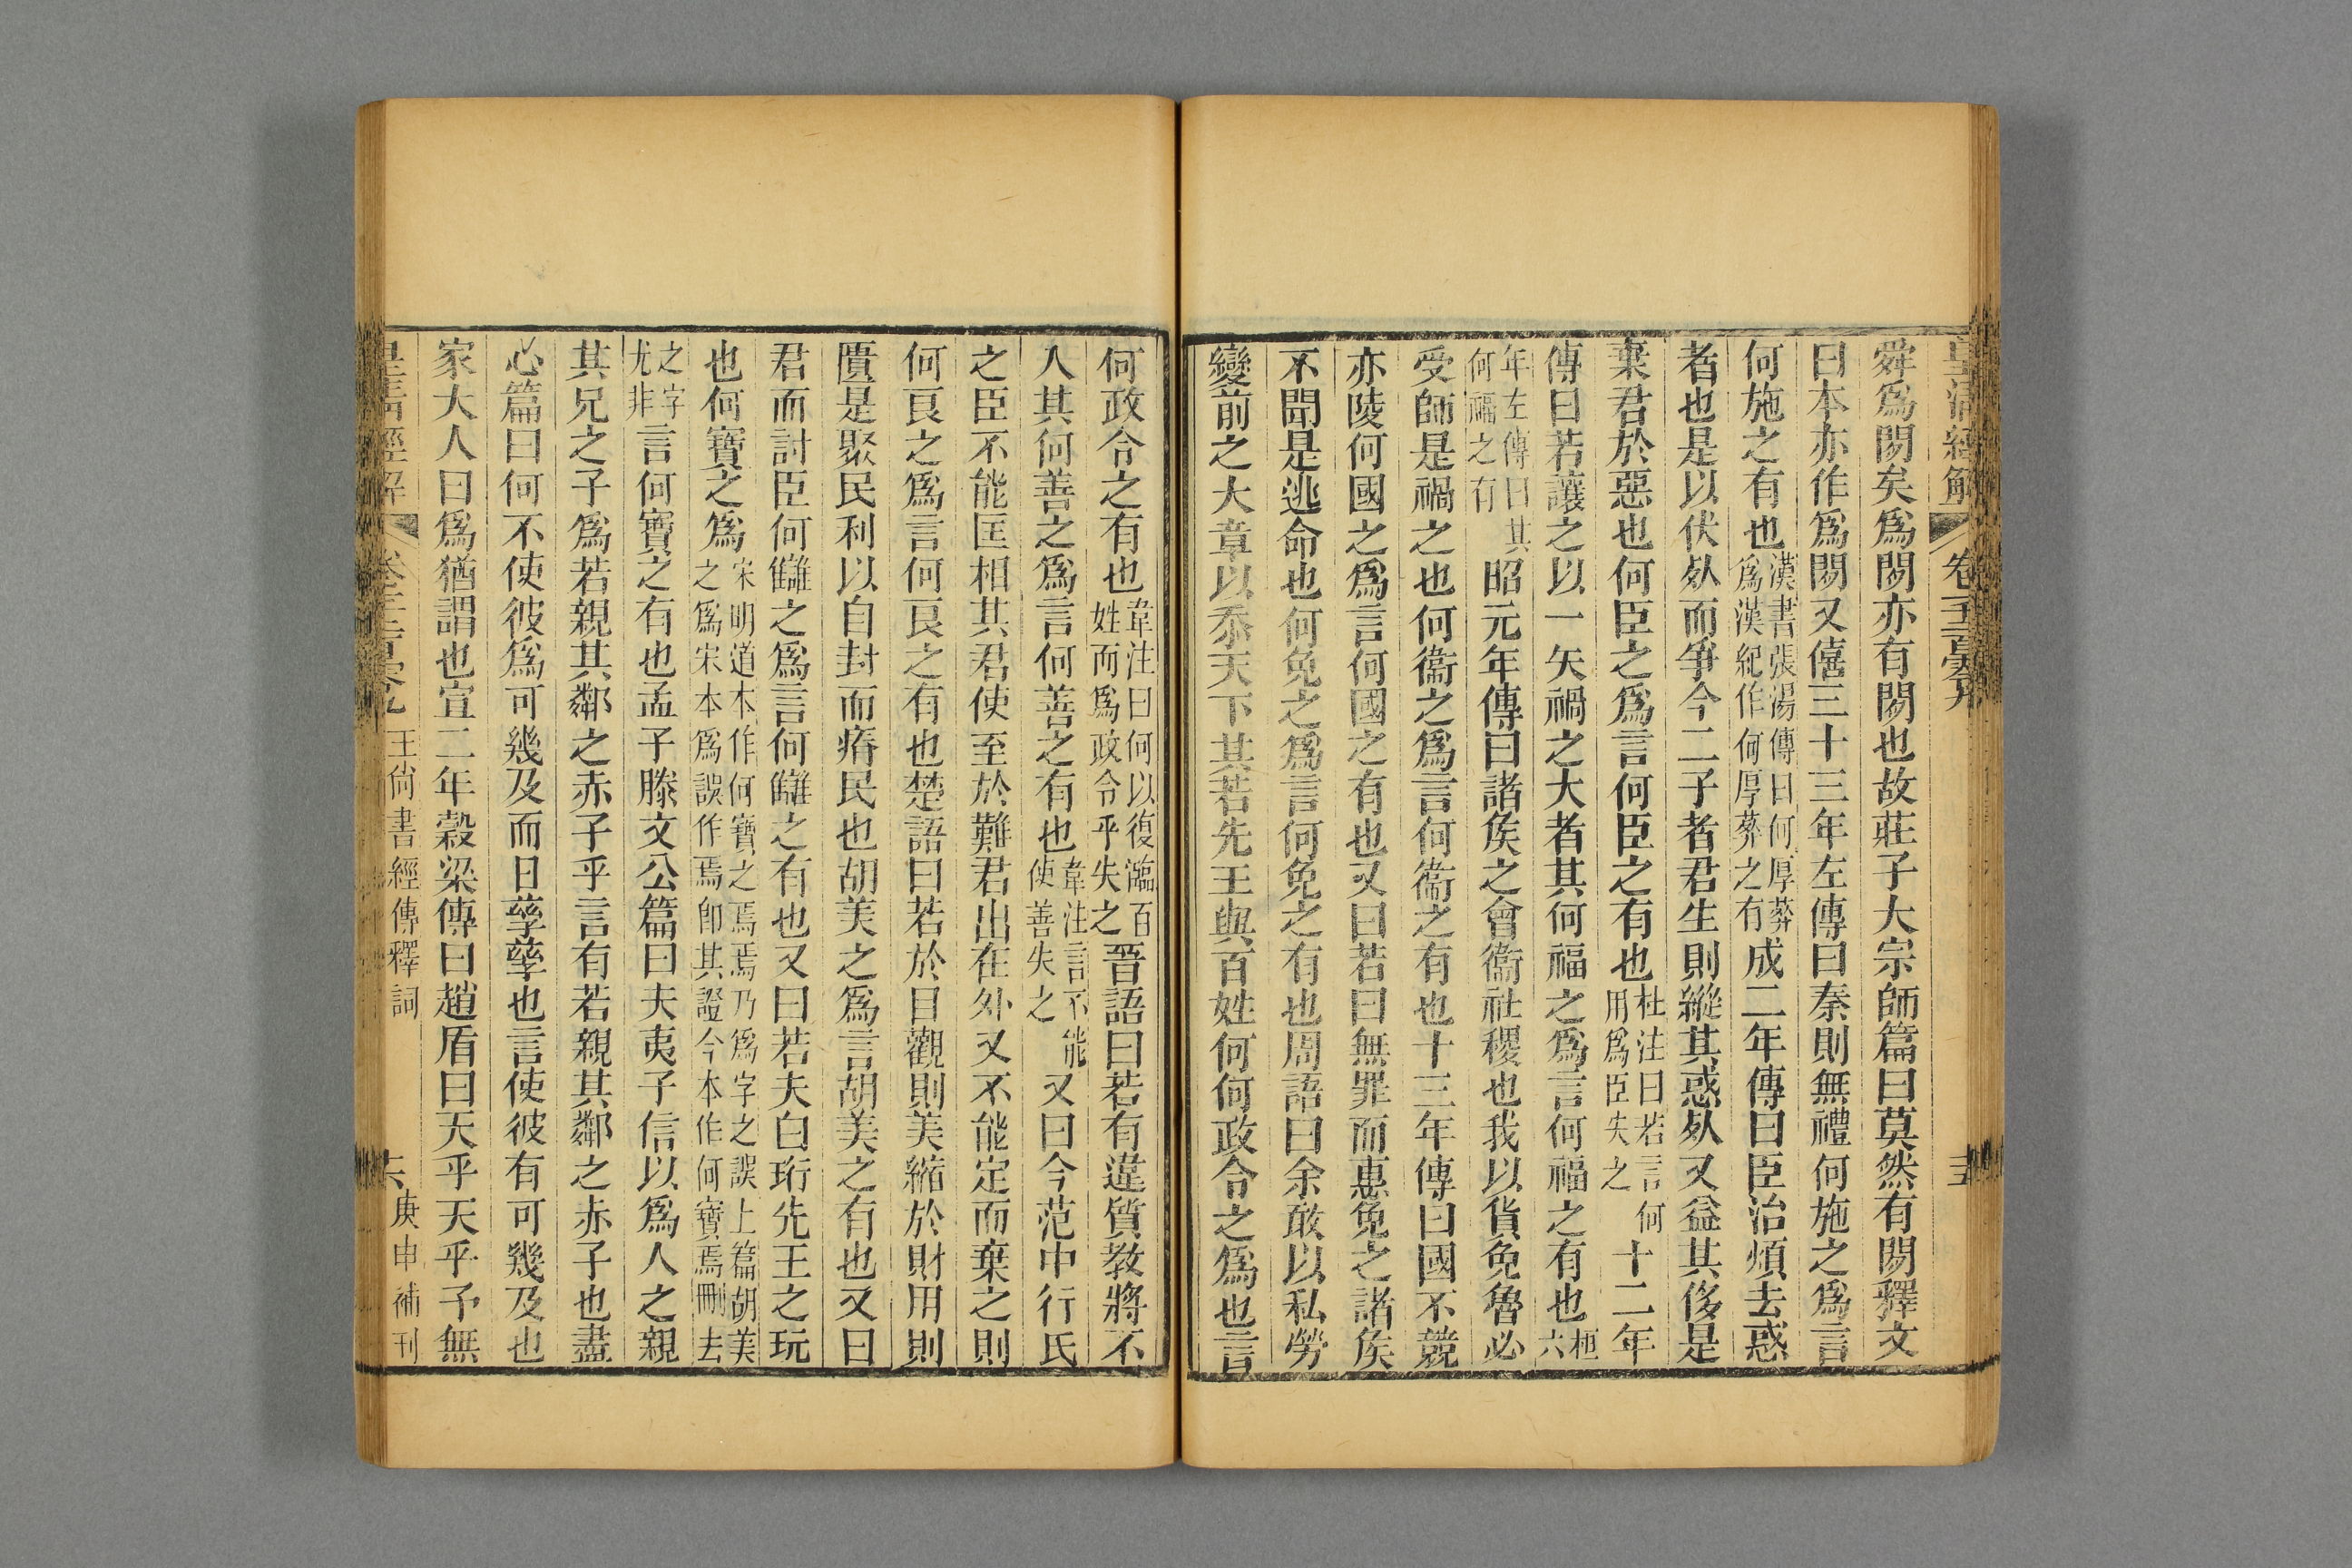 皇清經解 卷一千二百九 十五
舜爲閼矣爲閼亦有閼也故莊子大宗師篇曰莫然有閼釋文
曰本亦作爲閼又僖三十三年左傳曰秦則無禮何施之爲言
何施之有也漢書張湯傳曰何厚葬爲漢紀作何厚葬之有成二年傳曰臣治煩去惑
者也是以伏死而爭今二子者君生則縱其惑死又益其侈是
棄君於惡也何臣之爲言何臣之有也杜注曰若言何用爲臣失之十二年
傳曰若讓之以一矢禍之大者其何福之爲言何福之有也桓六
年左傳曰其何福之有昭元年傳曰諸矦之會衞社稷也我以貨免魯必
受師是禍之也何衞之爲言何衞之有也十三年傳曰國不競
亦陵何國之爲言何國之有也又曰若曰無罪而惠免之諸矦
不聞是逃命也何免之爲言何免之有也周語曰余敢以私勞
變前之大章以忝天下其若先王與百姓何何政令之爲也言
何政令之有也韋注曰何以復臨百姓而爲政令乎失之晉語曰若有違質教將不
入其何善之爲言何善之有也韋注言不能使善失之又曰今范中行氏
之臣不能匡相其君使至於難君出在外又不能定而棄之則
何良之爲言何良之有也楚語曰若於目觀則美縮於財用則
匱是聚民利以自封而瘠民也胡美之爲言胡美之有也又曰
君而討臣何讎之爲言何讎之有也又曰若夫白珩先王之玩
也何寶之爲宋明道本作何寶之焉焉乃爲字之誤上篇胡美之爲宋本爲誤作焉卽其證今本作何寶焉刪去
之字尤非言何寶之有也孟子滕文公篇曰夫夷子信以爲人之親
其兄之子爲若親其鄰之赤子乎言有若親其鄰之赤子也盡
心篇曰何不使彼爲可幾及而日孳孳也言使彼有可幾及也
家大人曰爲猶謂也宣二年穀梁傳曰趙盾曰天乎天乎予無
王尙書經傳釋詞 庚申補刊